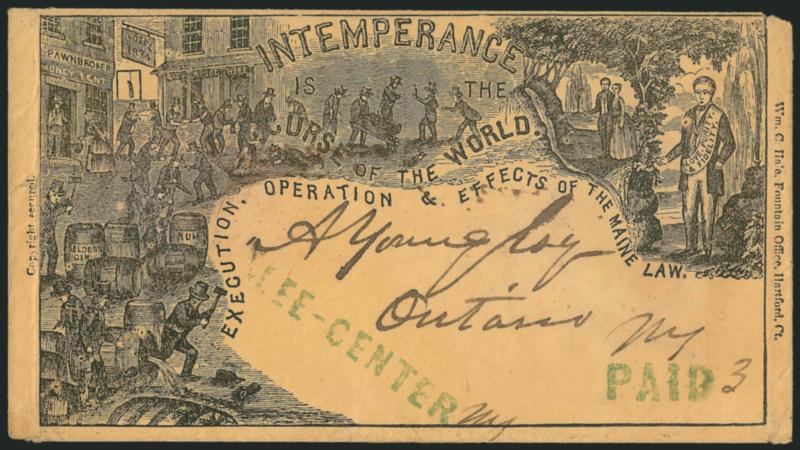 INTEMPERANCE
IS THE
CURSE OF THE WORLD.
EXECUTION, OPERATION & EFFECTS OF THE MAINE LAW.
PAWNBROKER
MONEY LENT
RUM
GIN
FIDELITY
Copyright secured.
Wm. C. Hale, Fountain Office, Hartford, Ct.
A Young Esq
Ontario NY
LEE-CENTER NY
PAID 3